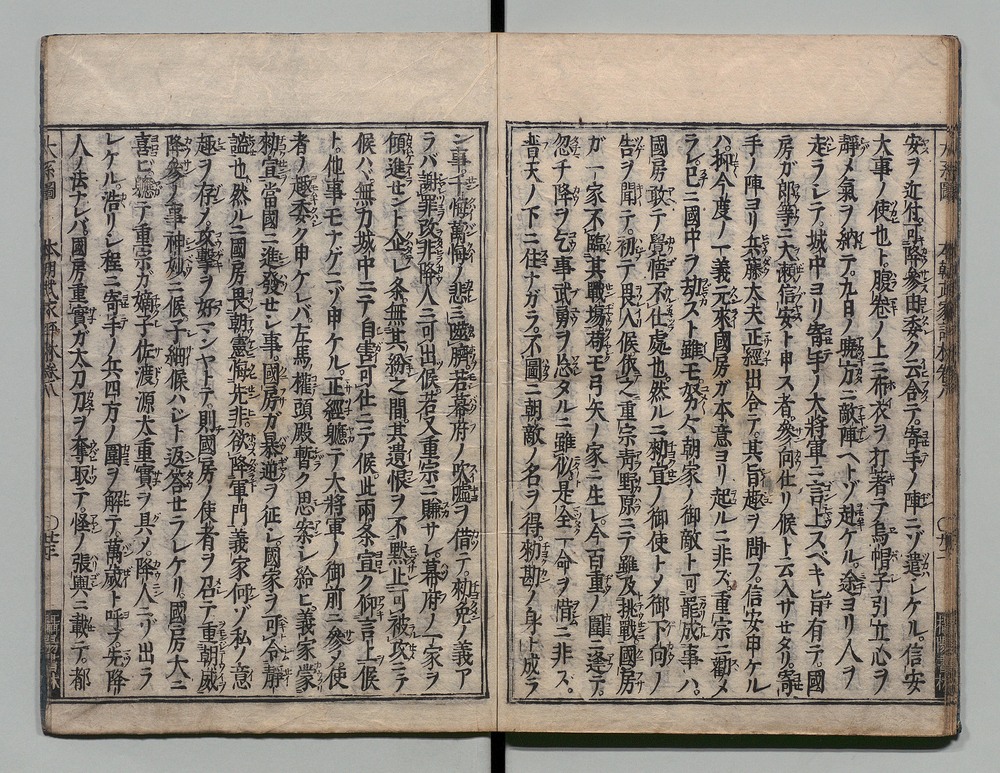 安ヲ近付テ降參由委ク云合テ寄手ノ陣ニゾ遣シケル信安
大事ノ使也ト腹卷ノ上ニ布衣ヲ打著テ烏帽子引立心ヲ
靜メ氣ヲ納テ九日ノ曉方ニ敵陣ヘトゾ赴ケル途ヨリ人ヲ
走ラレテ城中ヨリ寄手ノ大將軍ニ言上スベキ旨有テ國
房ガ郎等ニ大瀬信安ト申ス者參向仕リ候ト云入サセタリ寄
手ノ陣ヨリ兵藤大夫正經出合テ其旨趣ヲ問フ信安申ケル
ハ抑今度ノ一義元來國房ガ本意ヨリ起ルニ非ズ重宗ニ勸メ
ラレ已ニ國中ヲ劫スト雖モ努々朝家ノ御敵ト可罷成事ハ
國房敢テ覺悟不仕處也然ルニ勅宣ノ御使トメ御下向ノ
告ヲ聞テ初テ畏入候依之重宗靑野原ニテ雖及挑戰國房
ガ一家不臨其戰場苟モ弓矢ノ家ニ生レ今百重ノ圍ニ逢テ
忽チ降ヲ乞事武勇ヲ忘タルニ雖似是全一命ヲ惜ニ非ス
普天ノ下ニ住ナガラ不圖ニ朝敵ノ名ヲ得勅勘ノ身ト成ラ
ン事千悔萬悔ノ悲ミ噬臍若幕府ノ吹噓ヲ借テ勅免ノ義ア
ラバ謝罪改非降人ニ可出候若又重宗ニ賺サレ幕府ノ一家ヲ
傾進セント企シ条無其紛之間其遺恨ヲ不黙止可被攻ニテ
候ハバ無力城中ニテ自害可仕ニテ候此兩条宜ク仰言上候
ト他事モナゲニゾ申ケル正經軈テ大將軍ノ御前ニ參メ使
者ノ趣委ク申ケレバ左馬權頭殿暫ク思案シ給ヒ義家蒙
勅宣當國ニ進發セシ事國房ガ暴逆ヲ征シ國家ヲ可令靜
謐也然ルニ國房畏朝憲悔先非欲降軍門義家何ゾ私ノ意
趣ヲ存メ攻擊ヲ好マンヤトテ則國房ノ使者ヲ召テ重朝威
降參ノ事神妙ニ候子細候ハジト返答セラレケリ國房大ニ
喜ビ軈テ重宗ガ嫡子佐渡源太重實ヲ具メ降人ニゾ出ラ
レケル浩リシ程ニ寄手ノ兵四方ノ圍ヲ解テ萬歲ト呼ブ先降
人ノ法ナレバ國房重實ガ太刀刀ヲ奪取テ怪ノ張輿ニ載テ都
本朝武家評林卷八